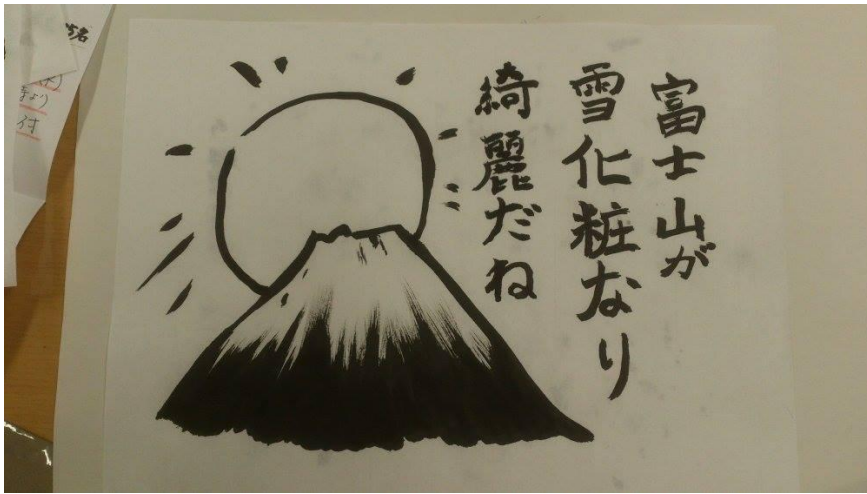 富士山が
雪化粧なり
綺麗だね